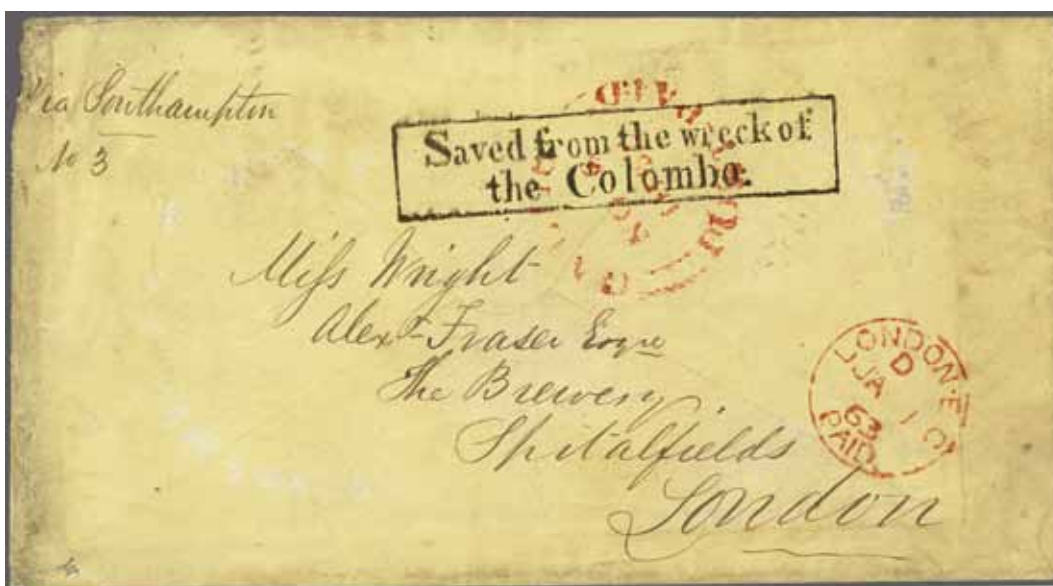 Via Southampton
No 3
Saved from the wreck of
the Colombo.
Miss Wright
Alexr Fraser Esqre
The Brewery
Spitalfields
London
LONDON·E C
D
JA 1
63
PAID